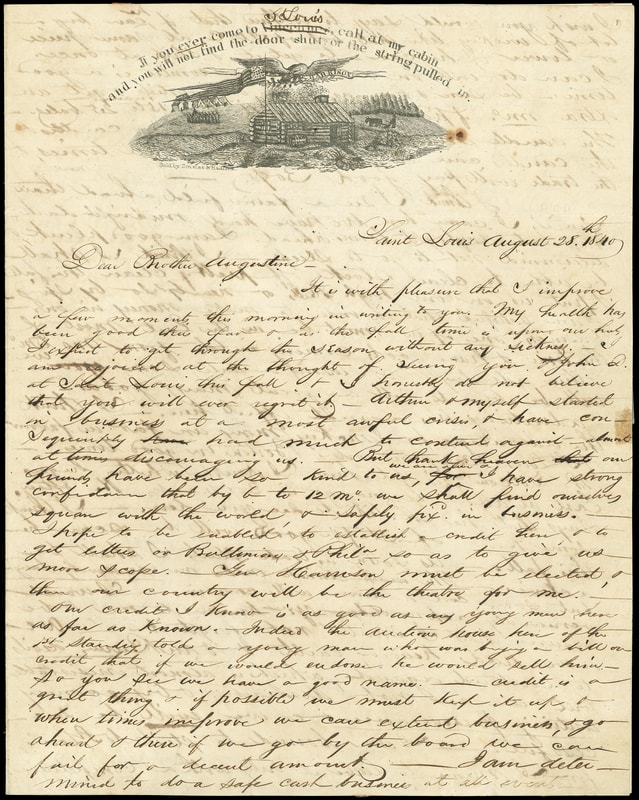 St Louis
If you ever come to Vincennes, call at my cabin
and you will not find the door shut, or the string pulled in.
HARRISON
Saint Louis August 28.th 1840
Dear Brother Augustine —
It is with pleasure that I improve
a few moments this morning in writing to you. My health has
been good this year & as the fall time is upon our
I expect to get through the season without any sickness. — I
am rejoiced at the thought of seeing you & John D.
at Saint Louis this fall & I honestly do not believe
that you will ever regret it — Arthur & myself started
in business at a most awful crisis, & have con
sequently had much to contend against — almost
at times discouraging us. But thank heaven our
friends have been so kind to us, we have strong
confidence that by 6 to 12 mo. we shall find ourselves
square with the world & safely fixd in business. —
I hope to be enabled to establish a credit here & to
get letters on Baltimore & Phila so as to give us
more scope. — Gen Harrison must be elected, &
then our country will be the theatre for me. —
Our credit I know is as good as any young men here
as far as known. Indeed the auction house here of the
1st standing told a young man who was buying a bill on
credit that if we would endorse he would sell him —
So you see we have a good name. — credit is a
great thing & if possible we must keep it up &
when times improve we can extend business, & go
ahead & then if we go by the board we can
fail for a decent amount. — I am deter-
mined to do a safe cash business at all events